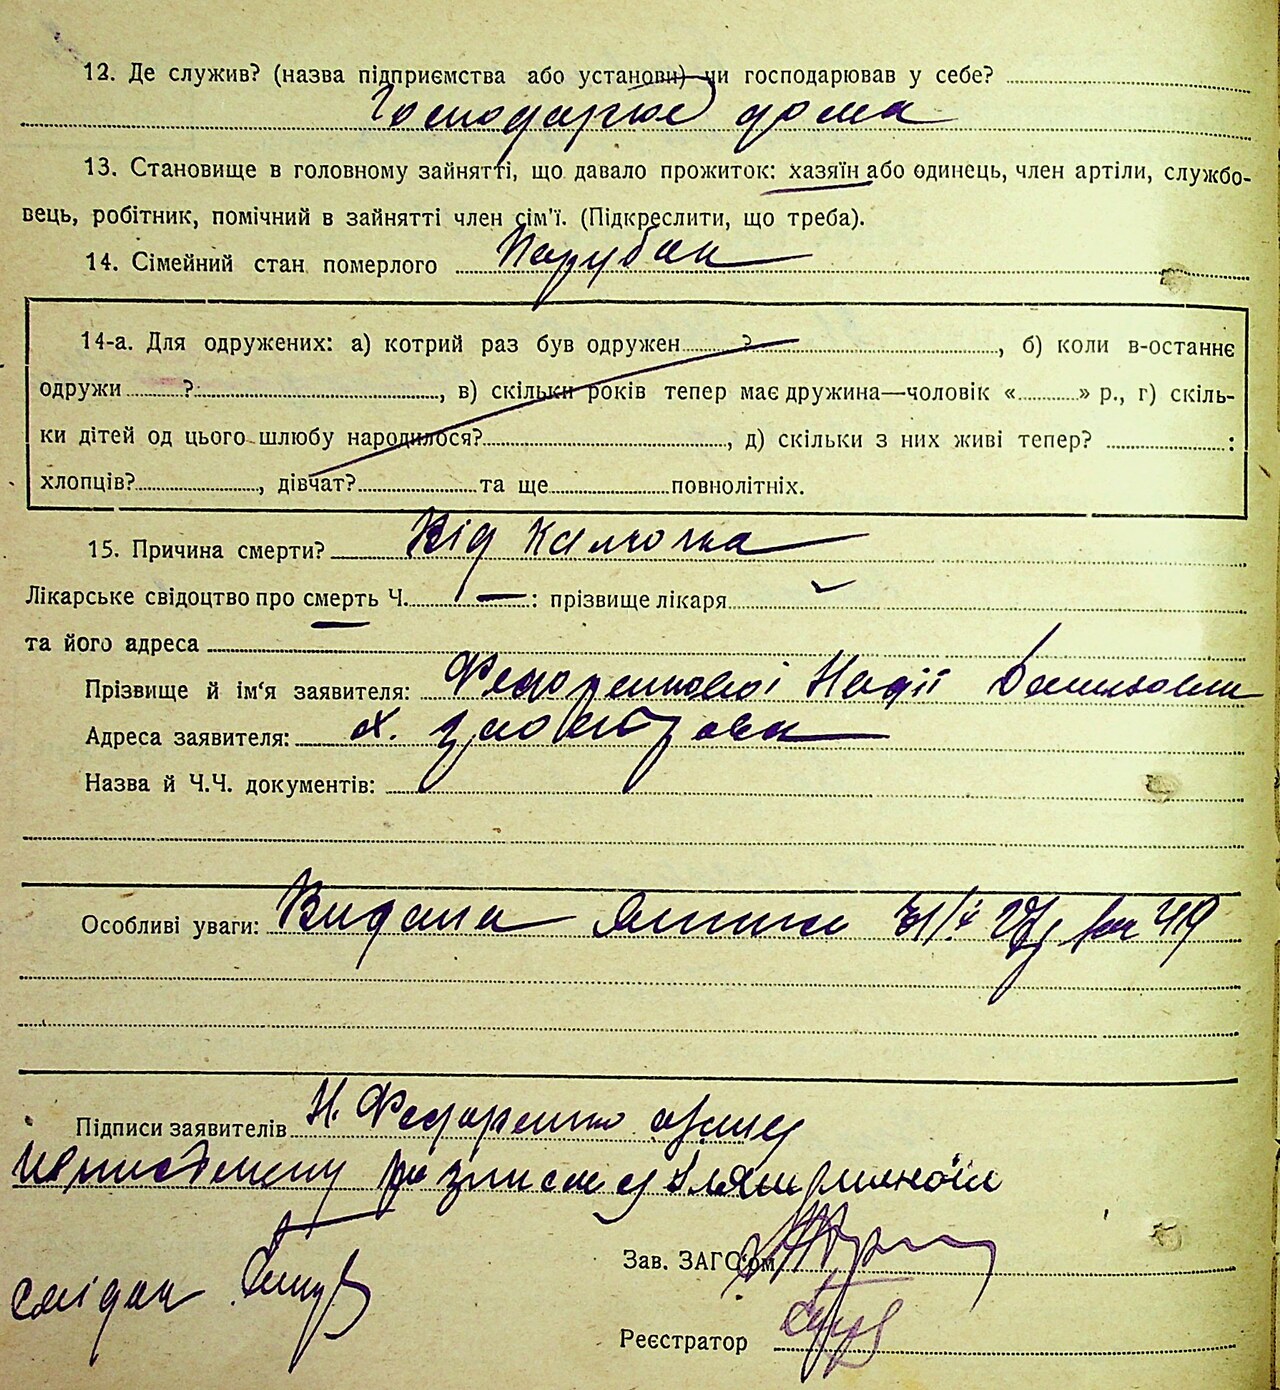 12. Де служив? (назва підприємства або установи) чи господарював у себе?
Господарює дома
13. Становище в головному зайнятті, що давало прожиток: хазяїн або одинець, член артіли, службо-
вець, робітник, помічний в зайнятті член сім'ї. (Підкреслити, що треба).
14. Сімейний стан померлого Парубок
14-а. Для одружених: а) котрий раз був одружен ? , б) коли в-останнє
одружи ?: , в) скільки років тепер має дружина—чоловік « » р., г) скіль-
ки дітей од цього шлюбу народилося? , д) скільки з них живі тепер? :
хлопців? , дівчат? та ще повнолітніх.
15. Причина смерти? Від
Лікарське свідоцтво про смерть Ч. — : прізвище лікаря
та його адреса
Прізвище й ім'я заявителя: Федоренкової Надії
Адреса заявителя: х.
Назва й Ч.Ч. документів:
Особливі уваги: Видана
Підписи заявителів Н. Федоренко
Зав. ЗАГС'ом
свідок
Реєстратор